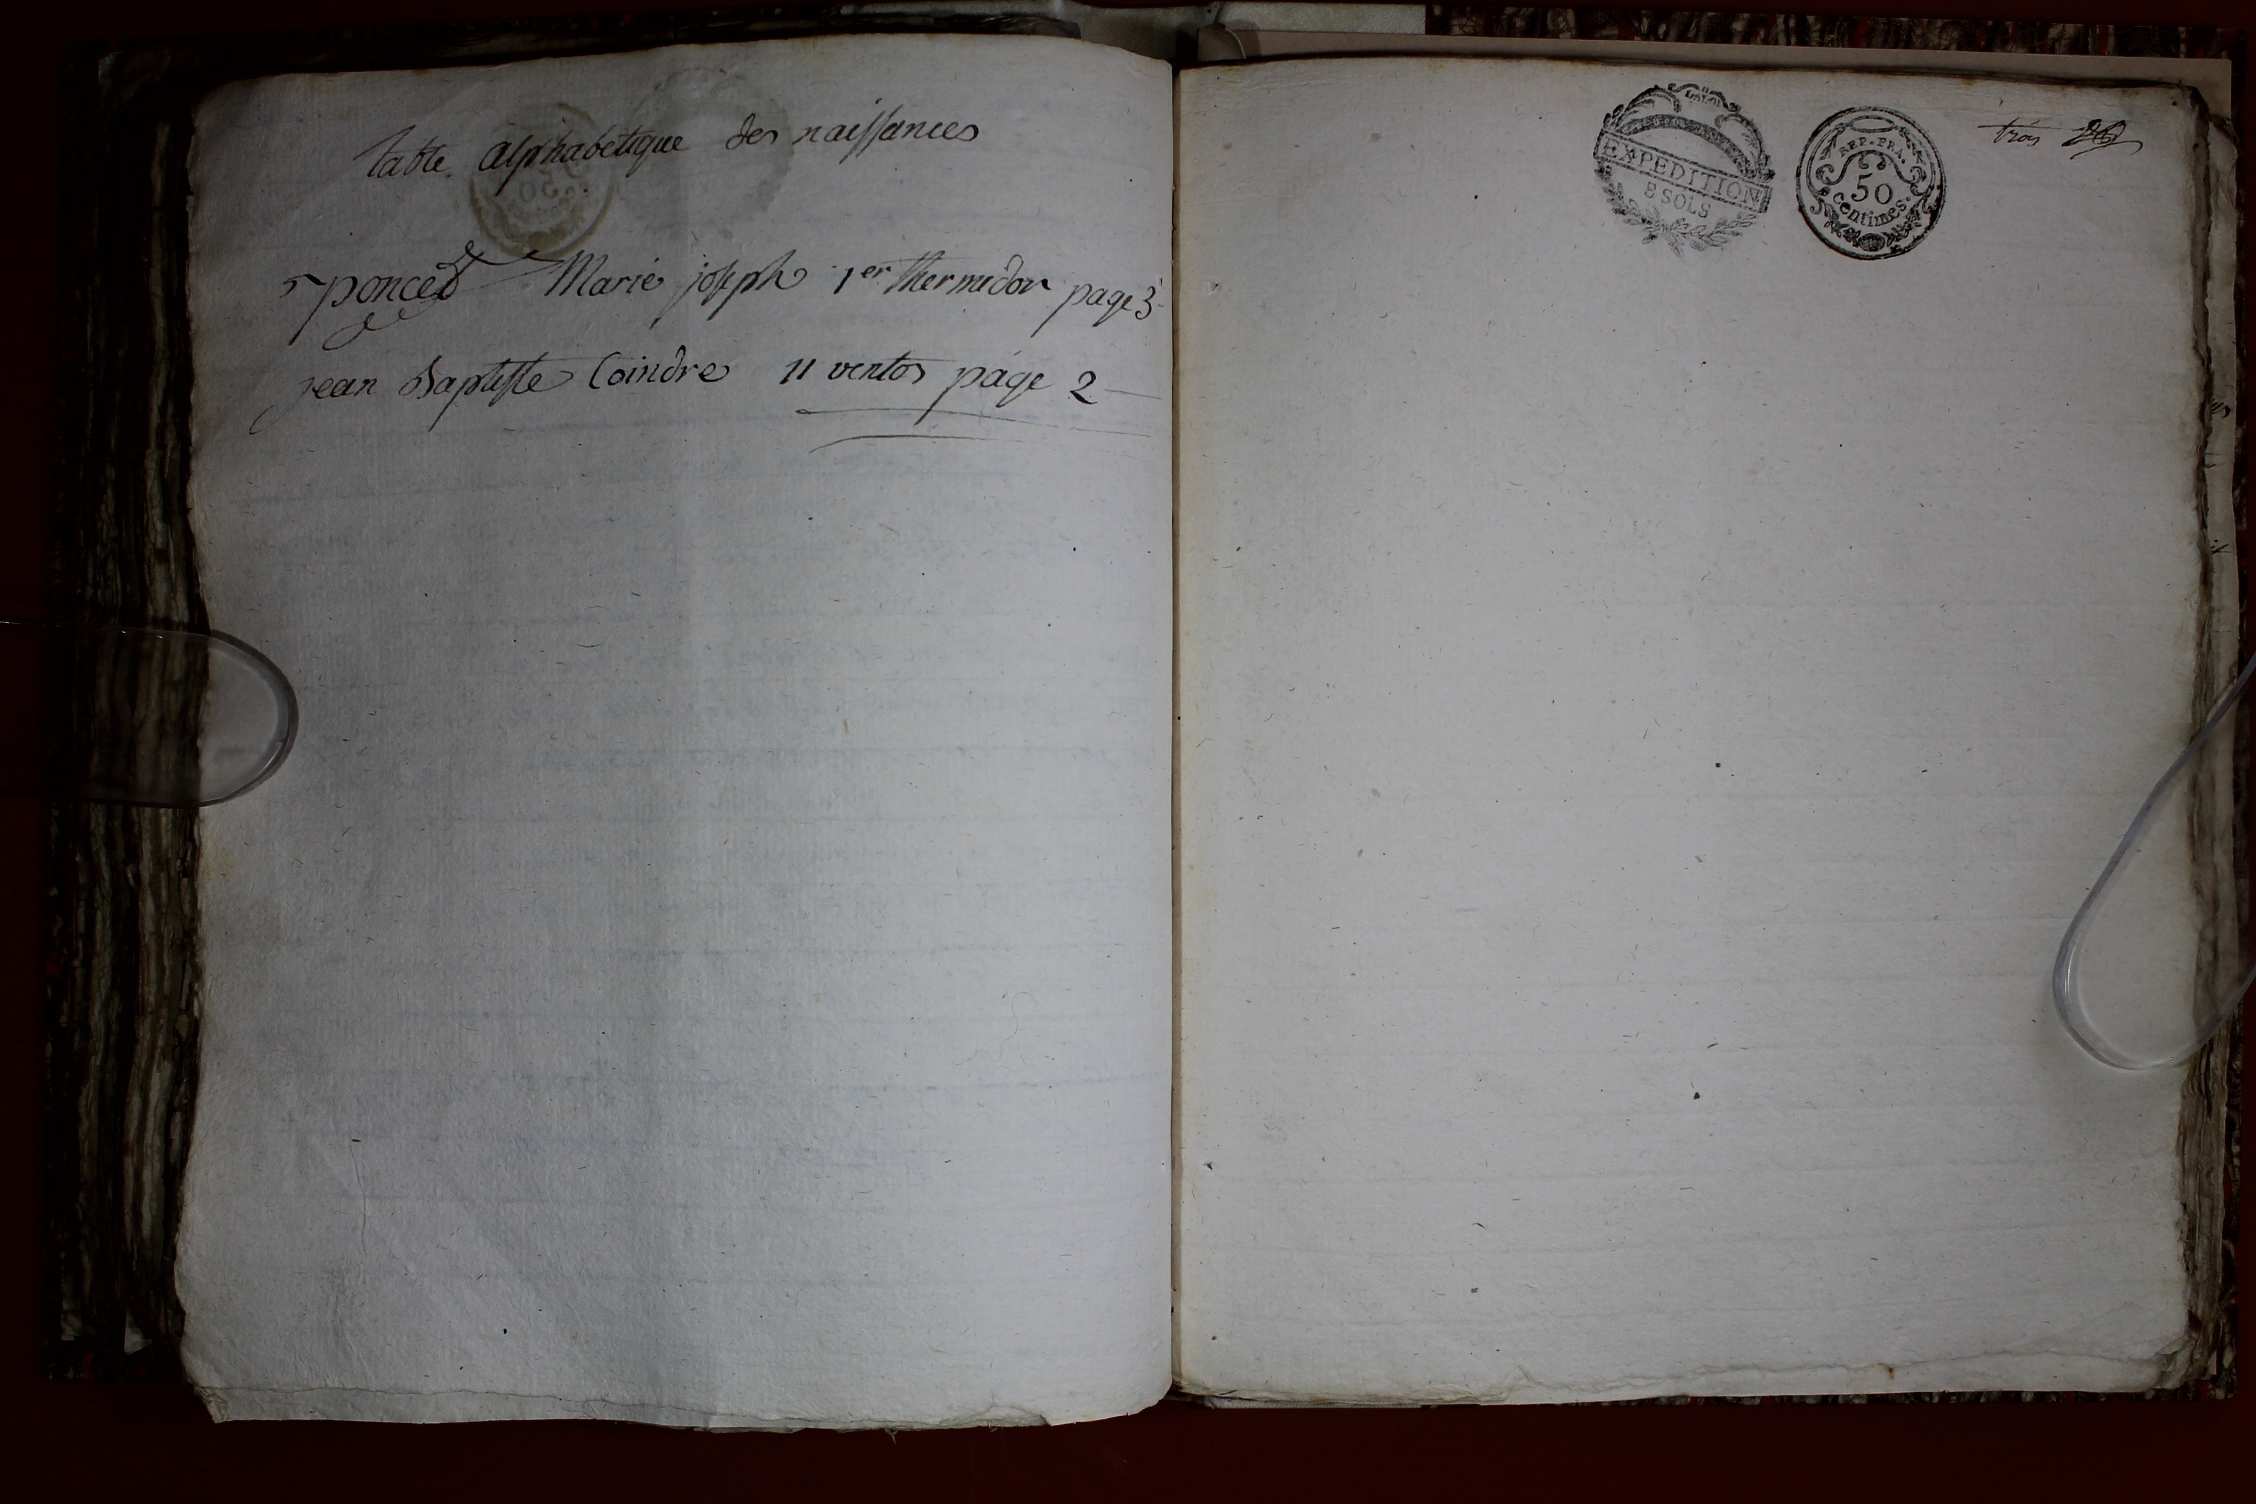 table alphabetique des naissances
poncet Marie joseph 1er thermidor page 3
jean Baptiste Coindre 11 ventos page 2
EXPEDITION
8 SOLS
REP. FRA.
50
centimes.
trois